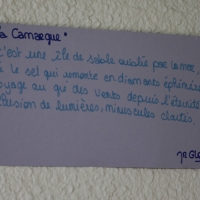 a Camargue"
c'est une île de sable oubliée par la mer,
le sel qui remonte en diamants éphémères
oyage au gré des vents depuis l'éternité
llusion de lumières, minuscules clartés.